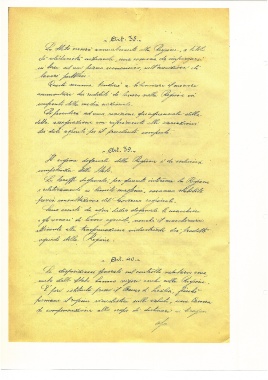 Art. 38.
Lo Stato verserà annualmente alla Regione, a titolo
di solidarietà nazionale, una somma da impiegarsi,
in base ad un piano economico, nell'esecuzione di
lavori pubblici.
Questa somma tenderà a bilanciare il minore
ammontare dei redditi di lavoro nella Regione in
confronto della media nazionale.
Si procederà ad una revisione quinquennale della
detta assegnazione con riferimento alle variazioni
dei dati assunti per il precedente computo.
Art. 39.
Il regime doganale della Regione è di esclusiva
competenza dello Stato.
Le tariffe doganali, per quanto interessa la Regione
e relativamente ai limiti massimi, saranno stabilite
previa consultazione del Governo regionale.
Sono esenti da ogni dazio doganale le macchine
e gli arnesi di lavoro agricolo, nonché il macchinario
attinente alla trasformazione industriale dei prodotti
agricoli della Regione.
Art. 40.
Le disposizioni generali sul controllo valutario ema-
nate dallo Stato hanno vigore anche nella Regione.
È però istituita presso il Banco di Sicilia, finché
permane il regime vincolistico sulle valute, una Camera
di compensazione allo scopo di destinare ai bisogni